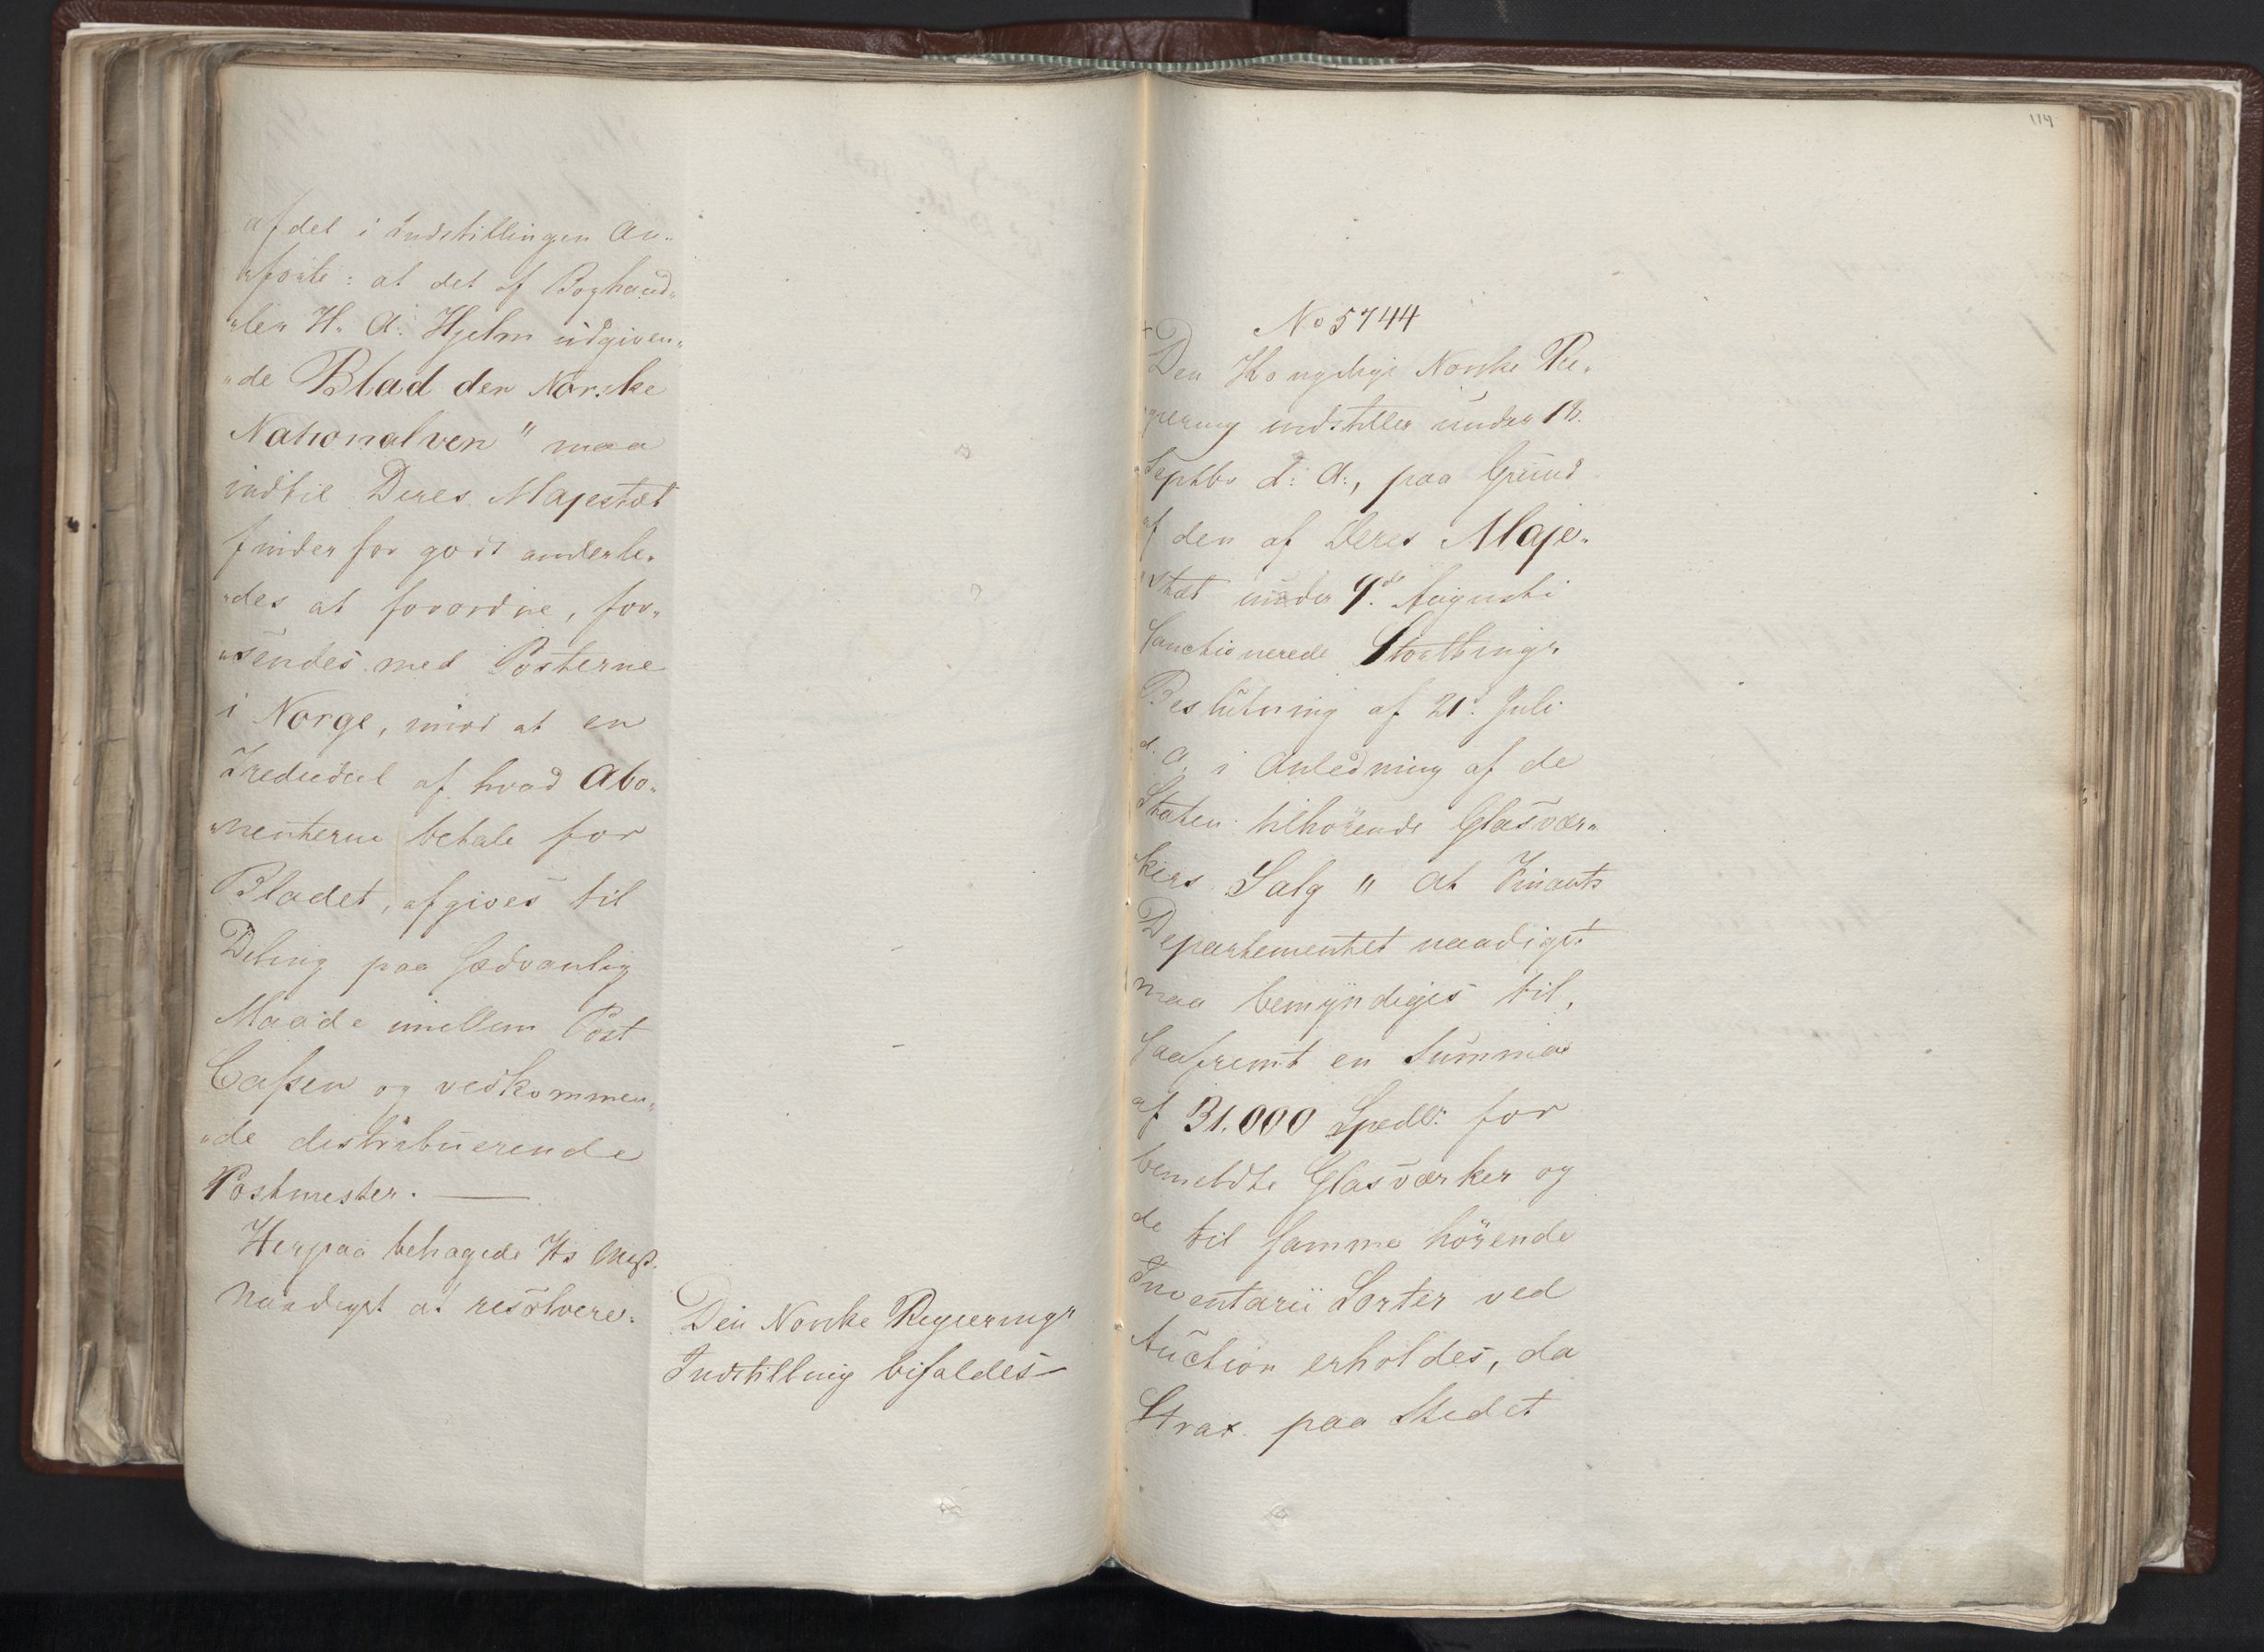 af det i Indstillingen An„
„førte: at det af Boghand„
„ler H. A. Hjelm udgiven„
„de Blad den Norske
Nationalven" maa
indtil Deres Majestæt
finder for godt anderle„
„des at forordne, for„
„sendes med Posterne
i Norge, imod at en
Trediedeel af hvad Abo„
„nenterne betale for
Bladet, afgives til
Deling paa sædvanlig
Maade imellem Post
Cassen og vedkommen„
„de distribuerende
Postmester. —
Herpaa behagede Hs Majst.
Naadigst at resolvere:
Den Norske Regierings
Indstilling bifaldes
114
No 5744
Den Kongelige Norske Re„
giering indstiller under 18.
Septbr d: A:, paa Grund
af den af Deres Maje„
„stæt under 9de Augusti
sanctionerede Storthings
Beslutning af 21. Juli
d. A. i Anledning af de
Staten tilhørende Glasvær„
kers Salg " at Finants
Departementet naadigst
maa bemyndiges til,
saafremt en Summa
af 31.000 Spedlr. for
bemeldte Glasværker og
de til samme hørende
Inventarii Sorter ved
Auction erholdes, da
Strax paa Stedet